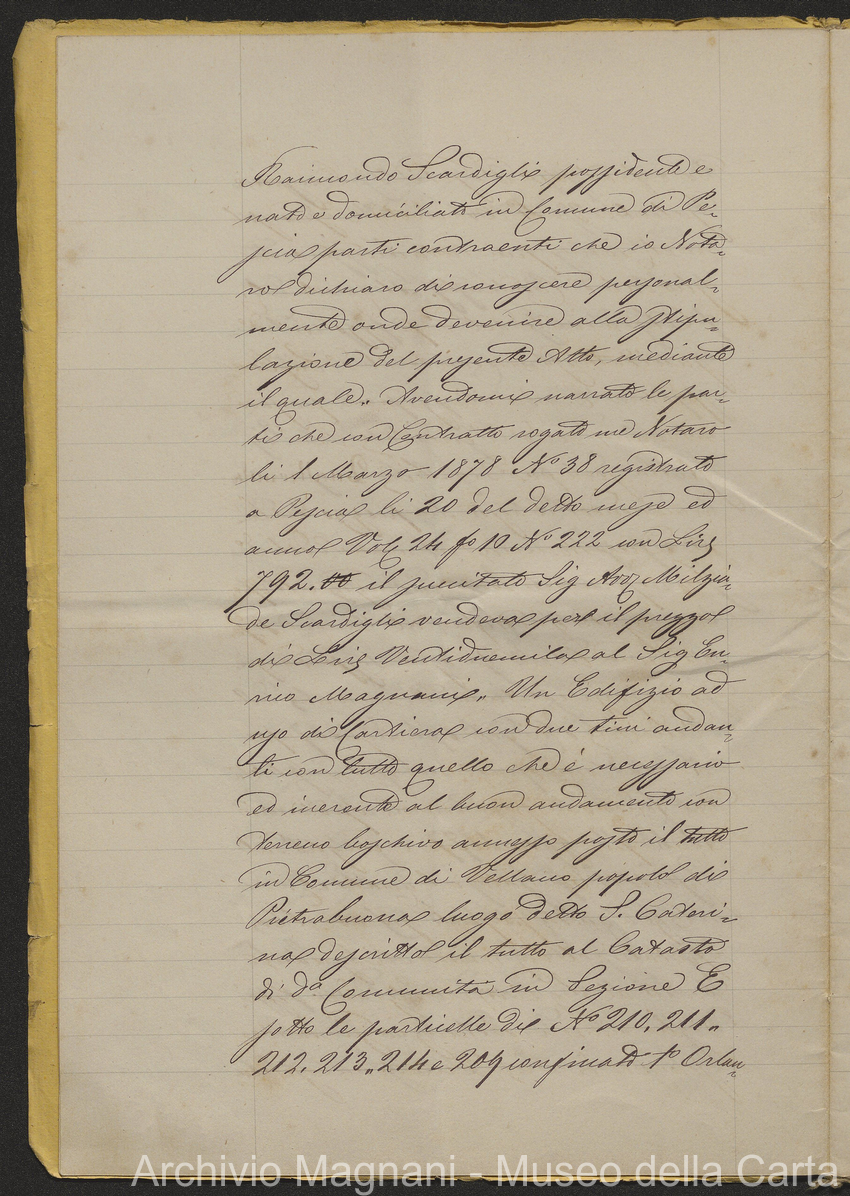 Raimondo Scardigli possidente e
nato e domiciliato in Comune di Pe-
scia parti contraenti che io Nota-
ro dichiaro di conoscere personal-
mente onde devenire alla stipu-
lazione del presente Atto, mediante
il quale„ Avendomi narrato le par-
ti che con Contratto rogato me Notaro
li 1 Marzo 1878 N° 38 registrato
a Pescia li 20 del detto mese ed
anno Vol 24 fo 10 N° 222 con Lire
792.00 il succitato Sig Avv Milzia-
de Scardigli vendeva per il prezzo
di Lire Ventiduemila al Sig En-
rico Magnani„ Un Edifizio ad
uso di Cartiera con due tini andan-
ti con tutto quello che è necessario
ed inerente al buon andamento con
terreno boschivo annesso posto il tutto
in Comune di Vellano popolo di
Pietrabuona luogo detto S. Cateri-
na descritto il tutto al Catasto
di da Comunità in Sezione E
sotto le particelle di N° 210, 211„
212, 213„ 214 e 209 confinato 1° Orlan-
Archivio Magnani - Museo della Carta